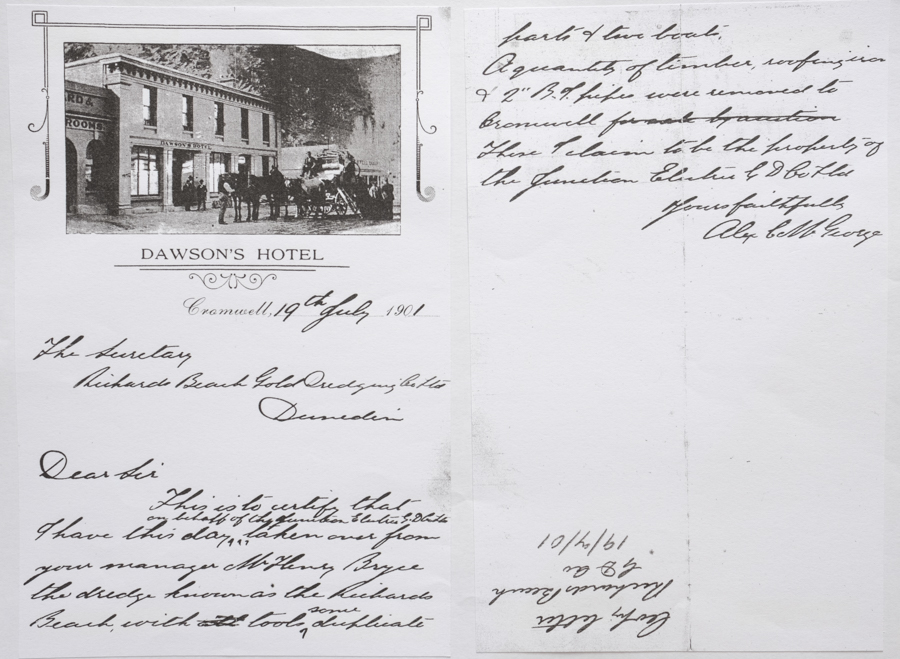 RD &
ROOMS
DAWSON'S HOTEL
DAWSON'S HOTEL
Cromwell, 19th July 1901
The Secretary
Richards Beach Gold Dredging Co Ltd
Dunedin
Dear Sir
This is to certify that
on behalf of the Junction Electric G.D Co Ltd
I have this day, taken over from
your manager Mr Henry Bryce
the dredge known as the Richards
Beach, with all tools, some duplicate
parts & two boats.
A quantity of timber, roofing iron
& 2" B.I. pipes were removed to
Cromwell for sale by auction
These I claim to be the property of
the Junction Electric G D Co Ltd
Yours faithfully
Alex C McGeorge
Copy letter
Richards Beach
G D Co
19/7/01